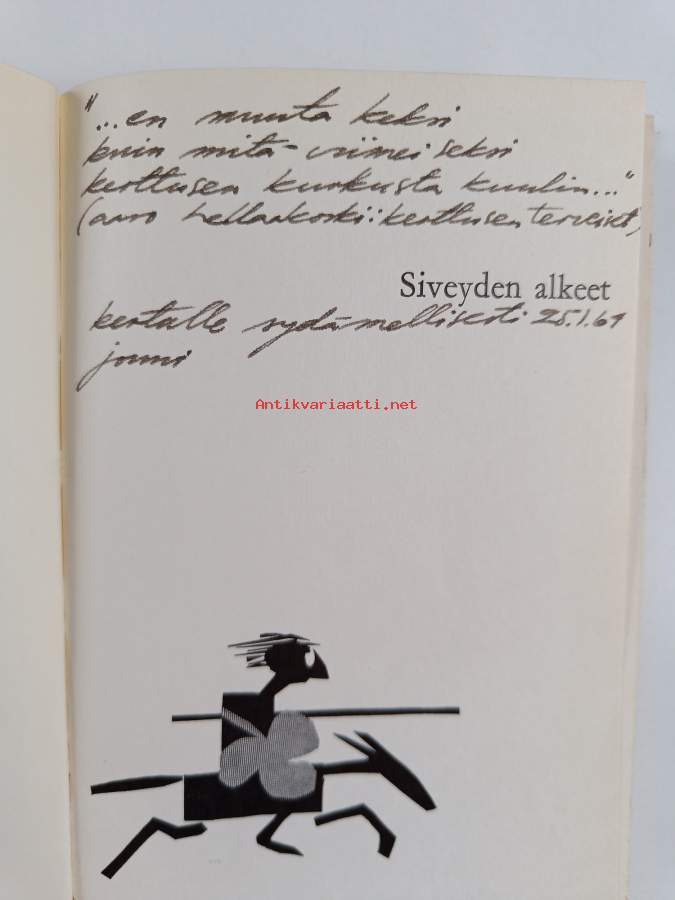 "...en muuta keksi
kuin mitä-viimeiseksi
kerttusen kurkusta kuulin..."
(aaro hellaakoski: kerttusen terveiset)
Siveyden alkeet
kertalle sydämellisesti 25.1.69
jouni
Antikvariaatti.net